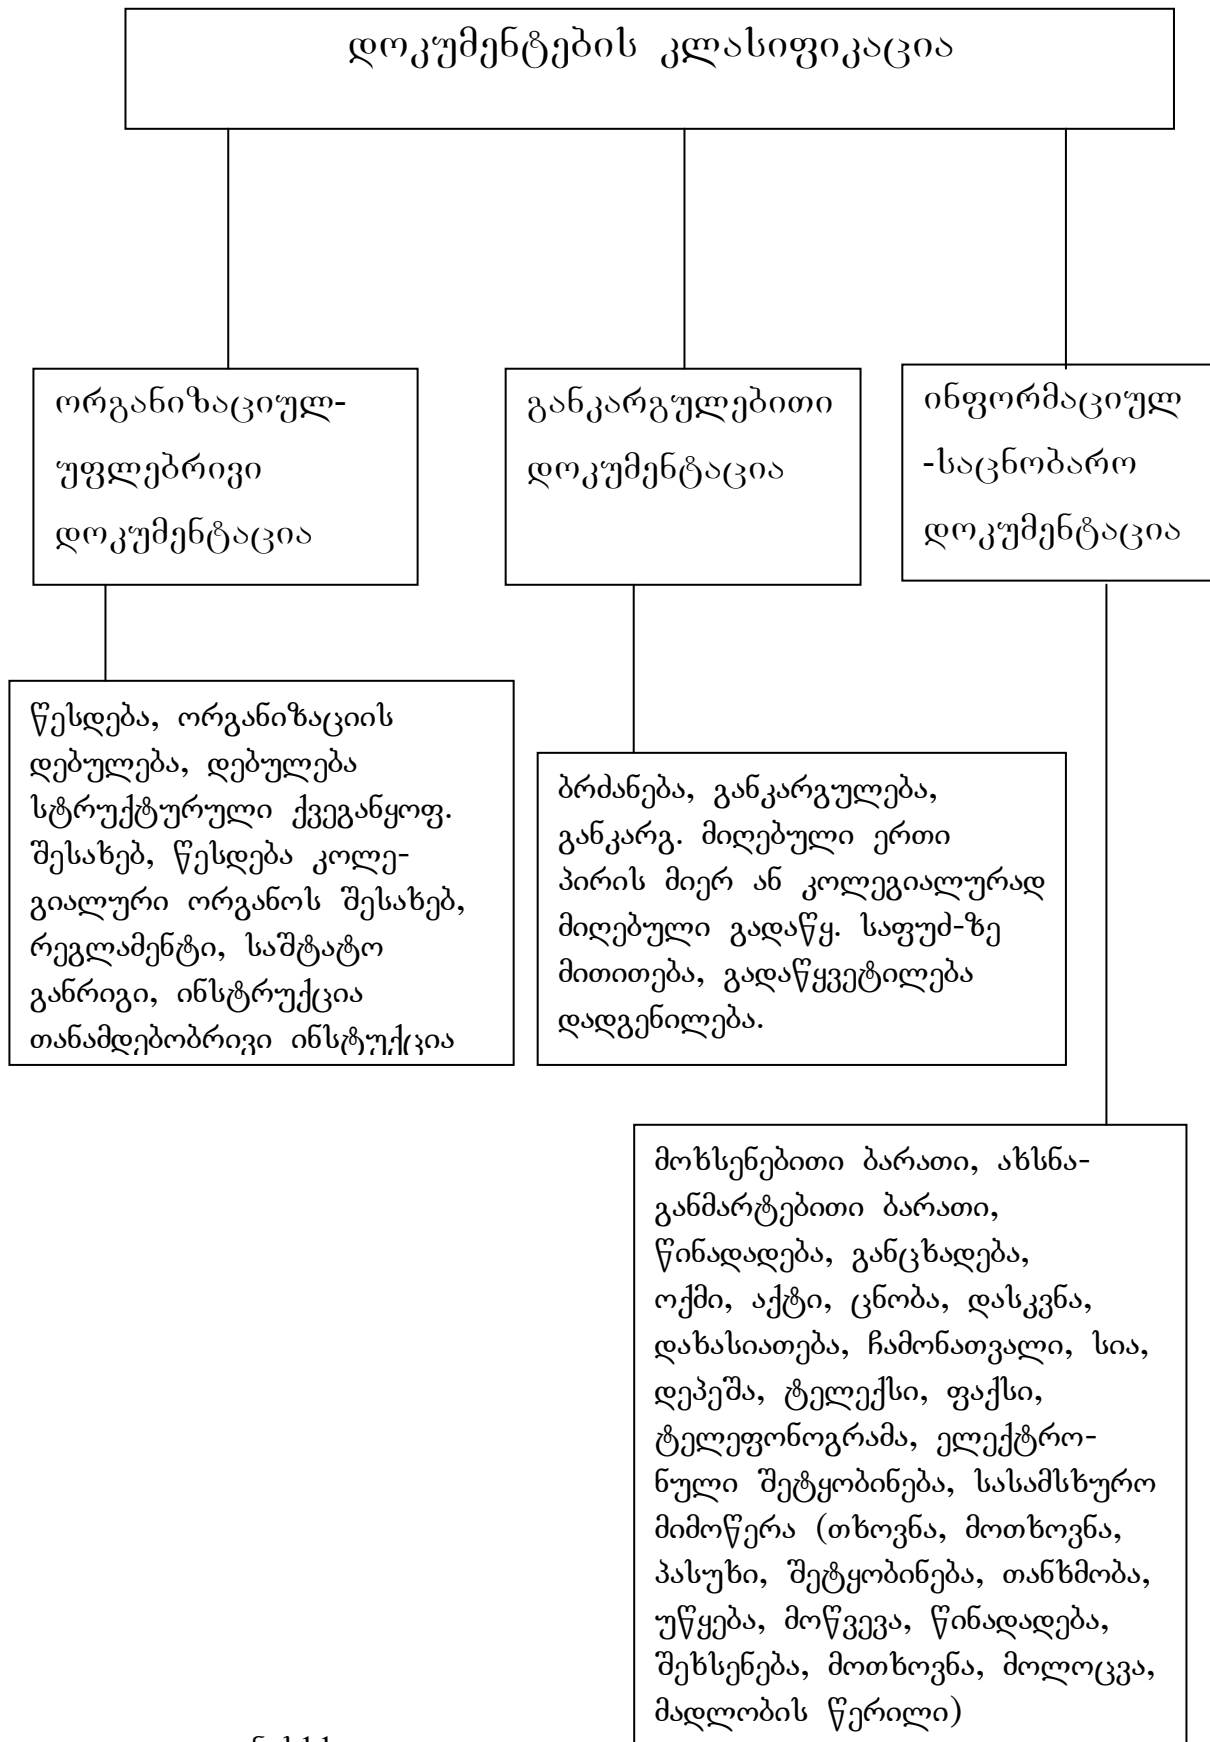 დოკუმენტების კლასიფიკაცია
ორგანიზაციულ-
უფლებრივი
დოკუმენტაცია
განკარგულებითი
დოკუმენტაცია
ინფორმაციულ
-საცნობარო
დოკუმენტაცია
წესდება, ორგანიზაციის
დებულება, დებულება
სტრუქტურული ქვეგანყოფ.
შესახებ, წესდება კოლე-
გიალური ორგანოს შესახებ,
რეგლამენტი, საშტატო
განრიგი, ინსტრუქცია
თანამდებობრივი ინსტუქცია
ბრძანება, განკარგულება,
განკარგ. მიღებული ერთი
პირის მიერ ან კოლეგიალურად
მიღებული გადაწყ. საფუძ-ზე
მითითება, გადაწყვეტილება
დადგენილება.
მოხსენებითი ბარათი, ახსნა-
განმარტებითი ბარათი,
წინადადება, განცხადება,
ოქმი, აქტი, ცნობა, დასკვნა,
დახასიათება, ჩამონათვალი, სია,
დეპეშა, ტელექსი, ფაქსი,
ტელეფონოგრამა, ელექტრო-
ნული შეტყობინება, სასამსხურო
მიმოწერა (თხოვნა, მოთხოვნა,
პასუხი, შეტყობინება, თანხმობა,
უწყება, მოწვევა, წინადადება,
შეხსენება, მოთხოვნა, მოლოცვა,
მადლობის წერილი)